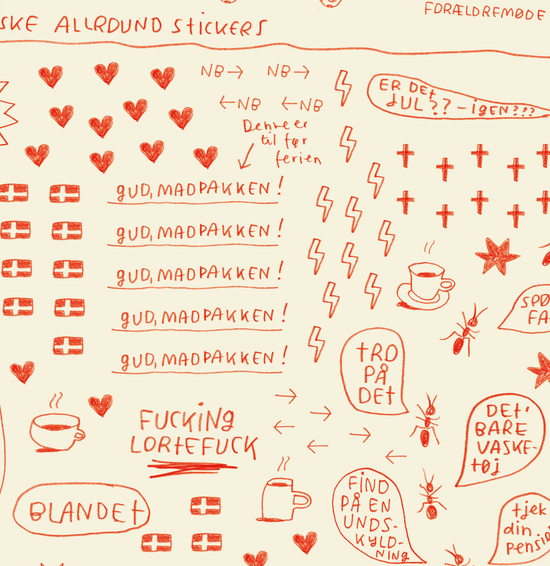 SKE ALLROUND STICKERS
FORÆLDREMØDE
NB NB
NB NB
Denne er
til før
ferien
ER DET
JUL?? - IGEN???
GUD, MADPAKKEN!
GUD, MADPAKKEN!
GUD, MADPAKKEN!
GUD, MADPAKKEN!
GUD, MADPAKKEN!
SPØ
FA
TRO
PÅ
DET
FUCKING
LORTEFUCK
DET'
BARE
VASKE-
TØJ
BLANDET
FIND
PÅ EN
UNDS-
KYLD-
NING
tjek
din
pensi